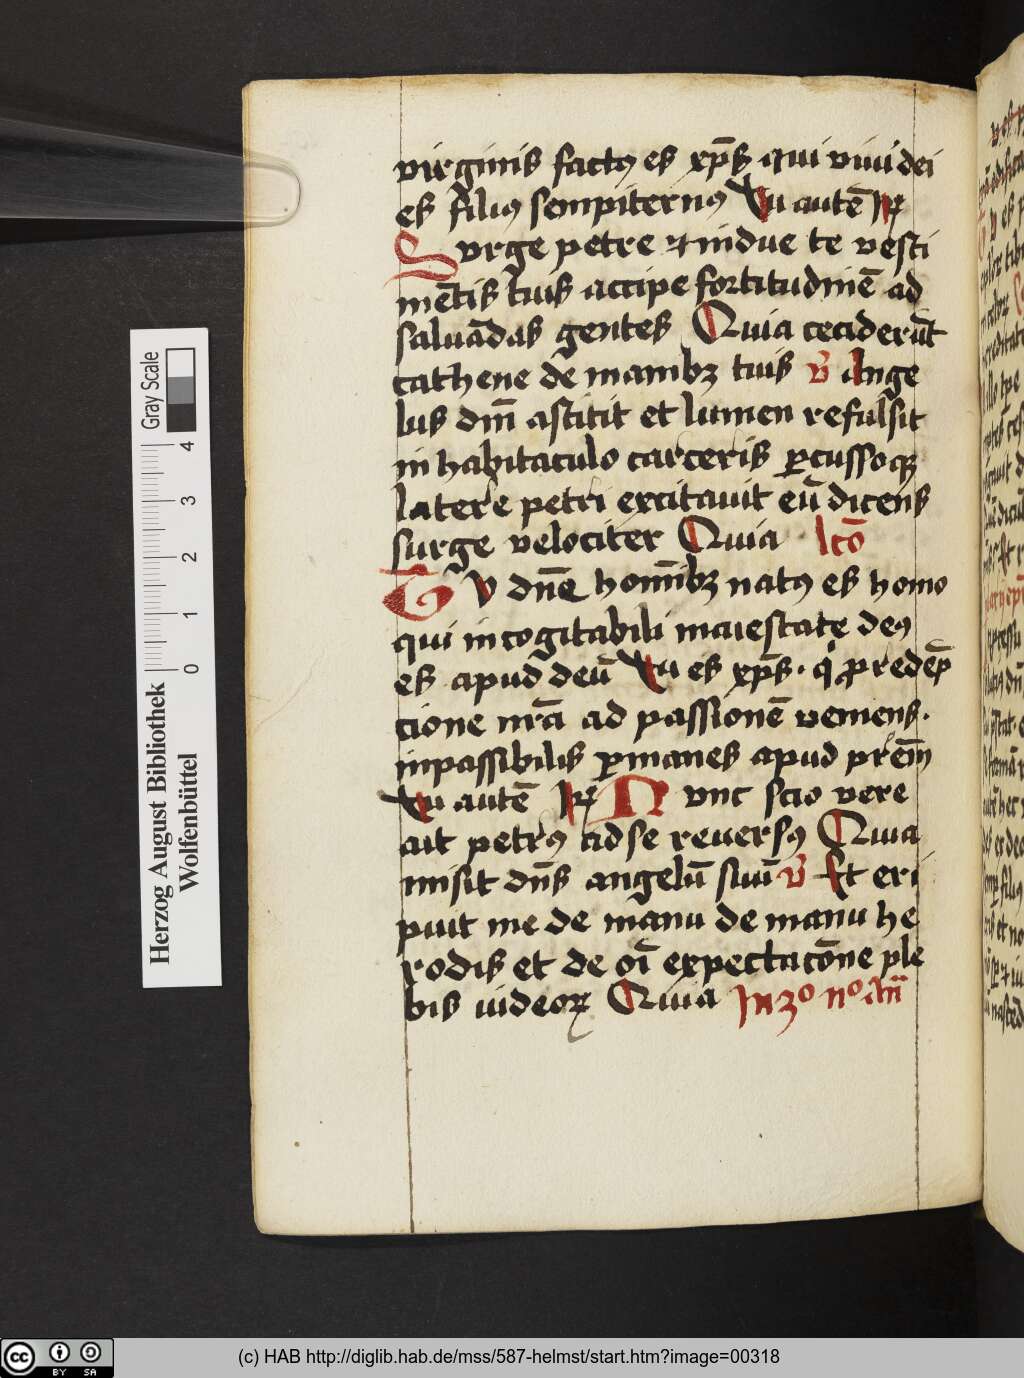 virginis factꝰ es xp̄s qui viui dei
es filiꝰ sempiternꝰ Tu autē R̷
Surge petre ⁊ indue te vesti
mētis tuis accipe fortitudinē ad
saluādas gentes Quia ceciderūt
cathene de manibꝫ tuis v̄ Ange
lus dn̄i astitit et lumen refulsit
in habitaculo carceris ꝑcussoqꝫ
latere petri excitauit eū dicens
surge velociter Quia lc̄o
Tv dn̄e hoīnibꝫ natꝰ es homo
qui incogitabili maiestate deꝰ
es apud deū Tu es xp̄s. q̇ ꝓ redēp
tione nr̄a ad passionē veniens.
inpassibilis ꝑmanes apud pr̄em
Tu autē R̷ Nunc scio vere
ait petrꝰ ad se reuersꝰ Quia
misit dn̄s angelū suū v̄ Et eri
puit me de manu de manu he
rodis et de oī expectacōne ple
bis iudeoꝝ Quia In 3º nº an̄
Gray Scale
0 1 2 3 4
Herzog August Bibliothek
Wolfenbüttel
cc BY SA
(c) HAB http://diglib.hab.de/mss/587-helmst/start.htm?image=00318